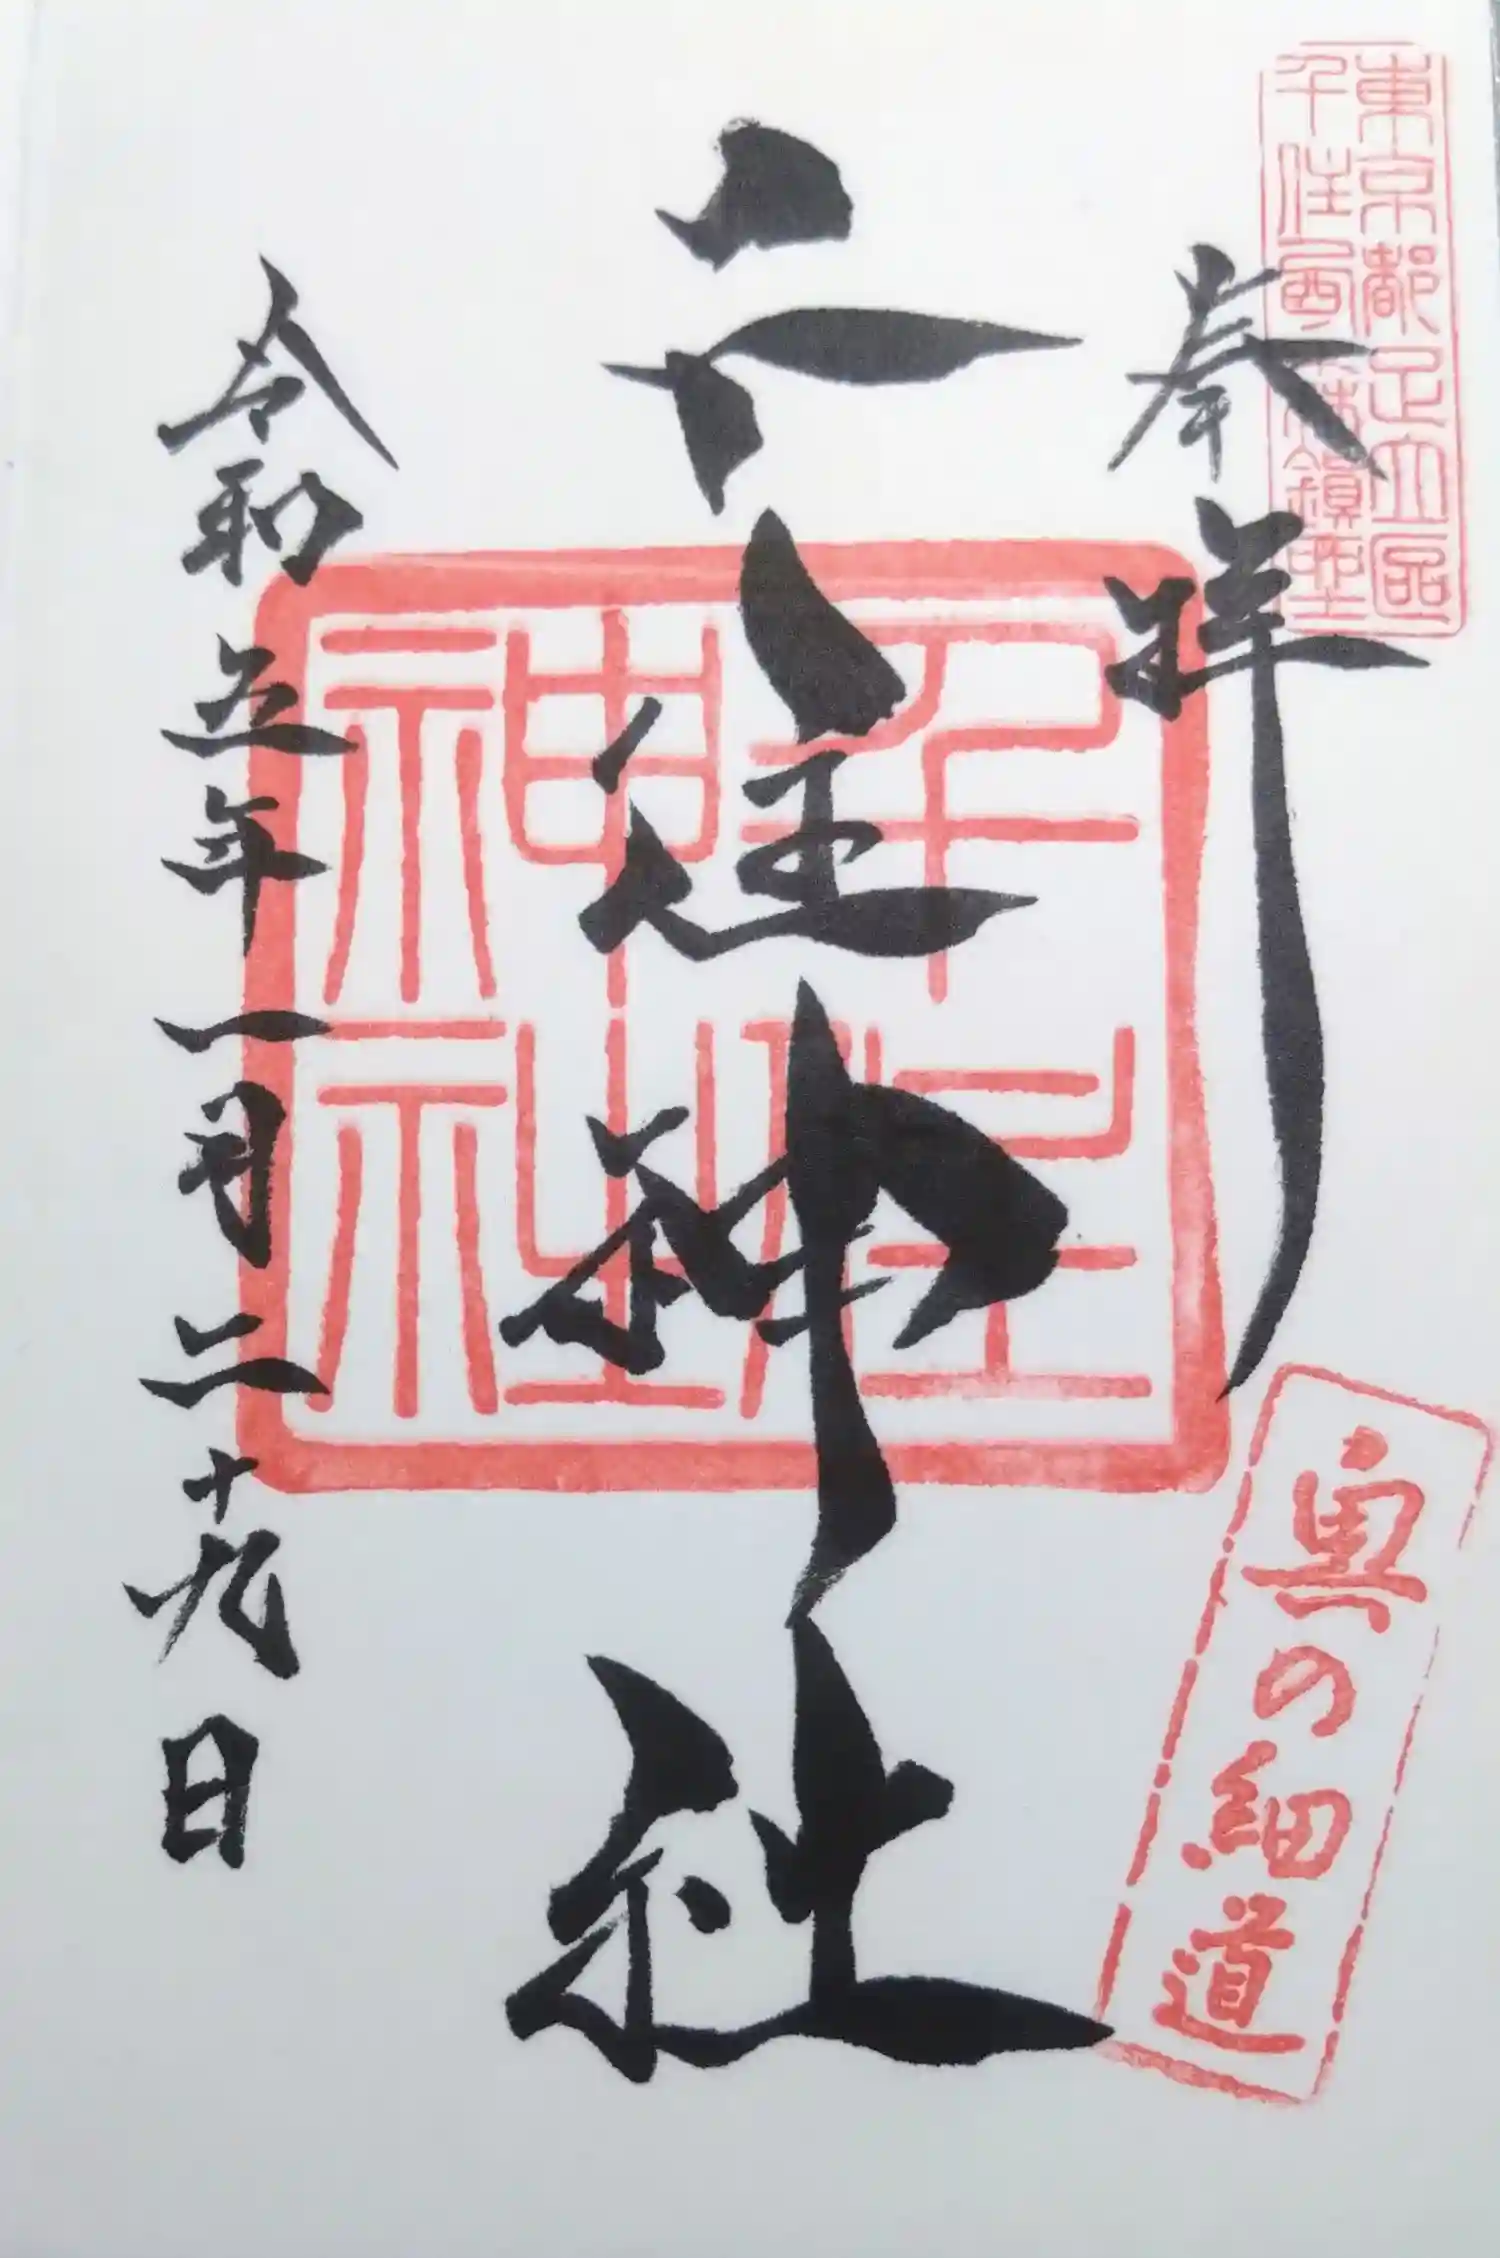 東京都足立區
千住西森鎮座
奉拝
千住神社
千住
神社
令和五年一月二十九日
奥の細道